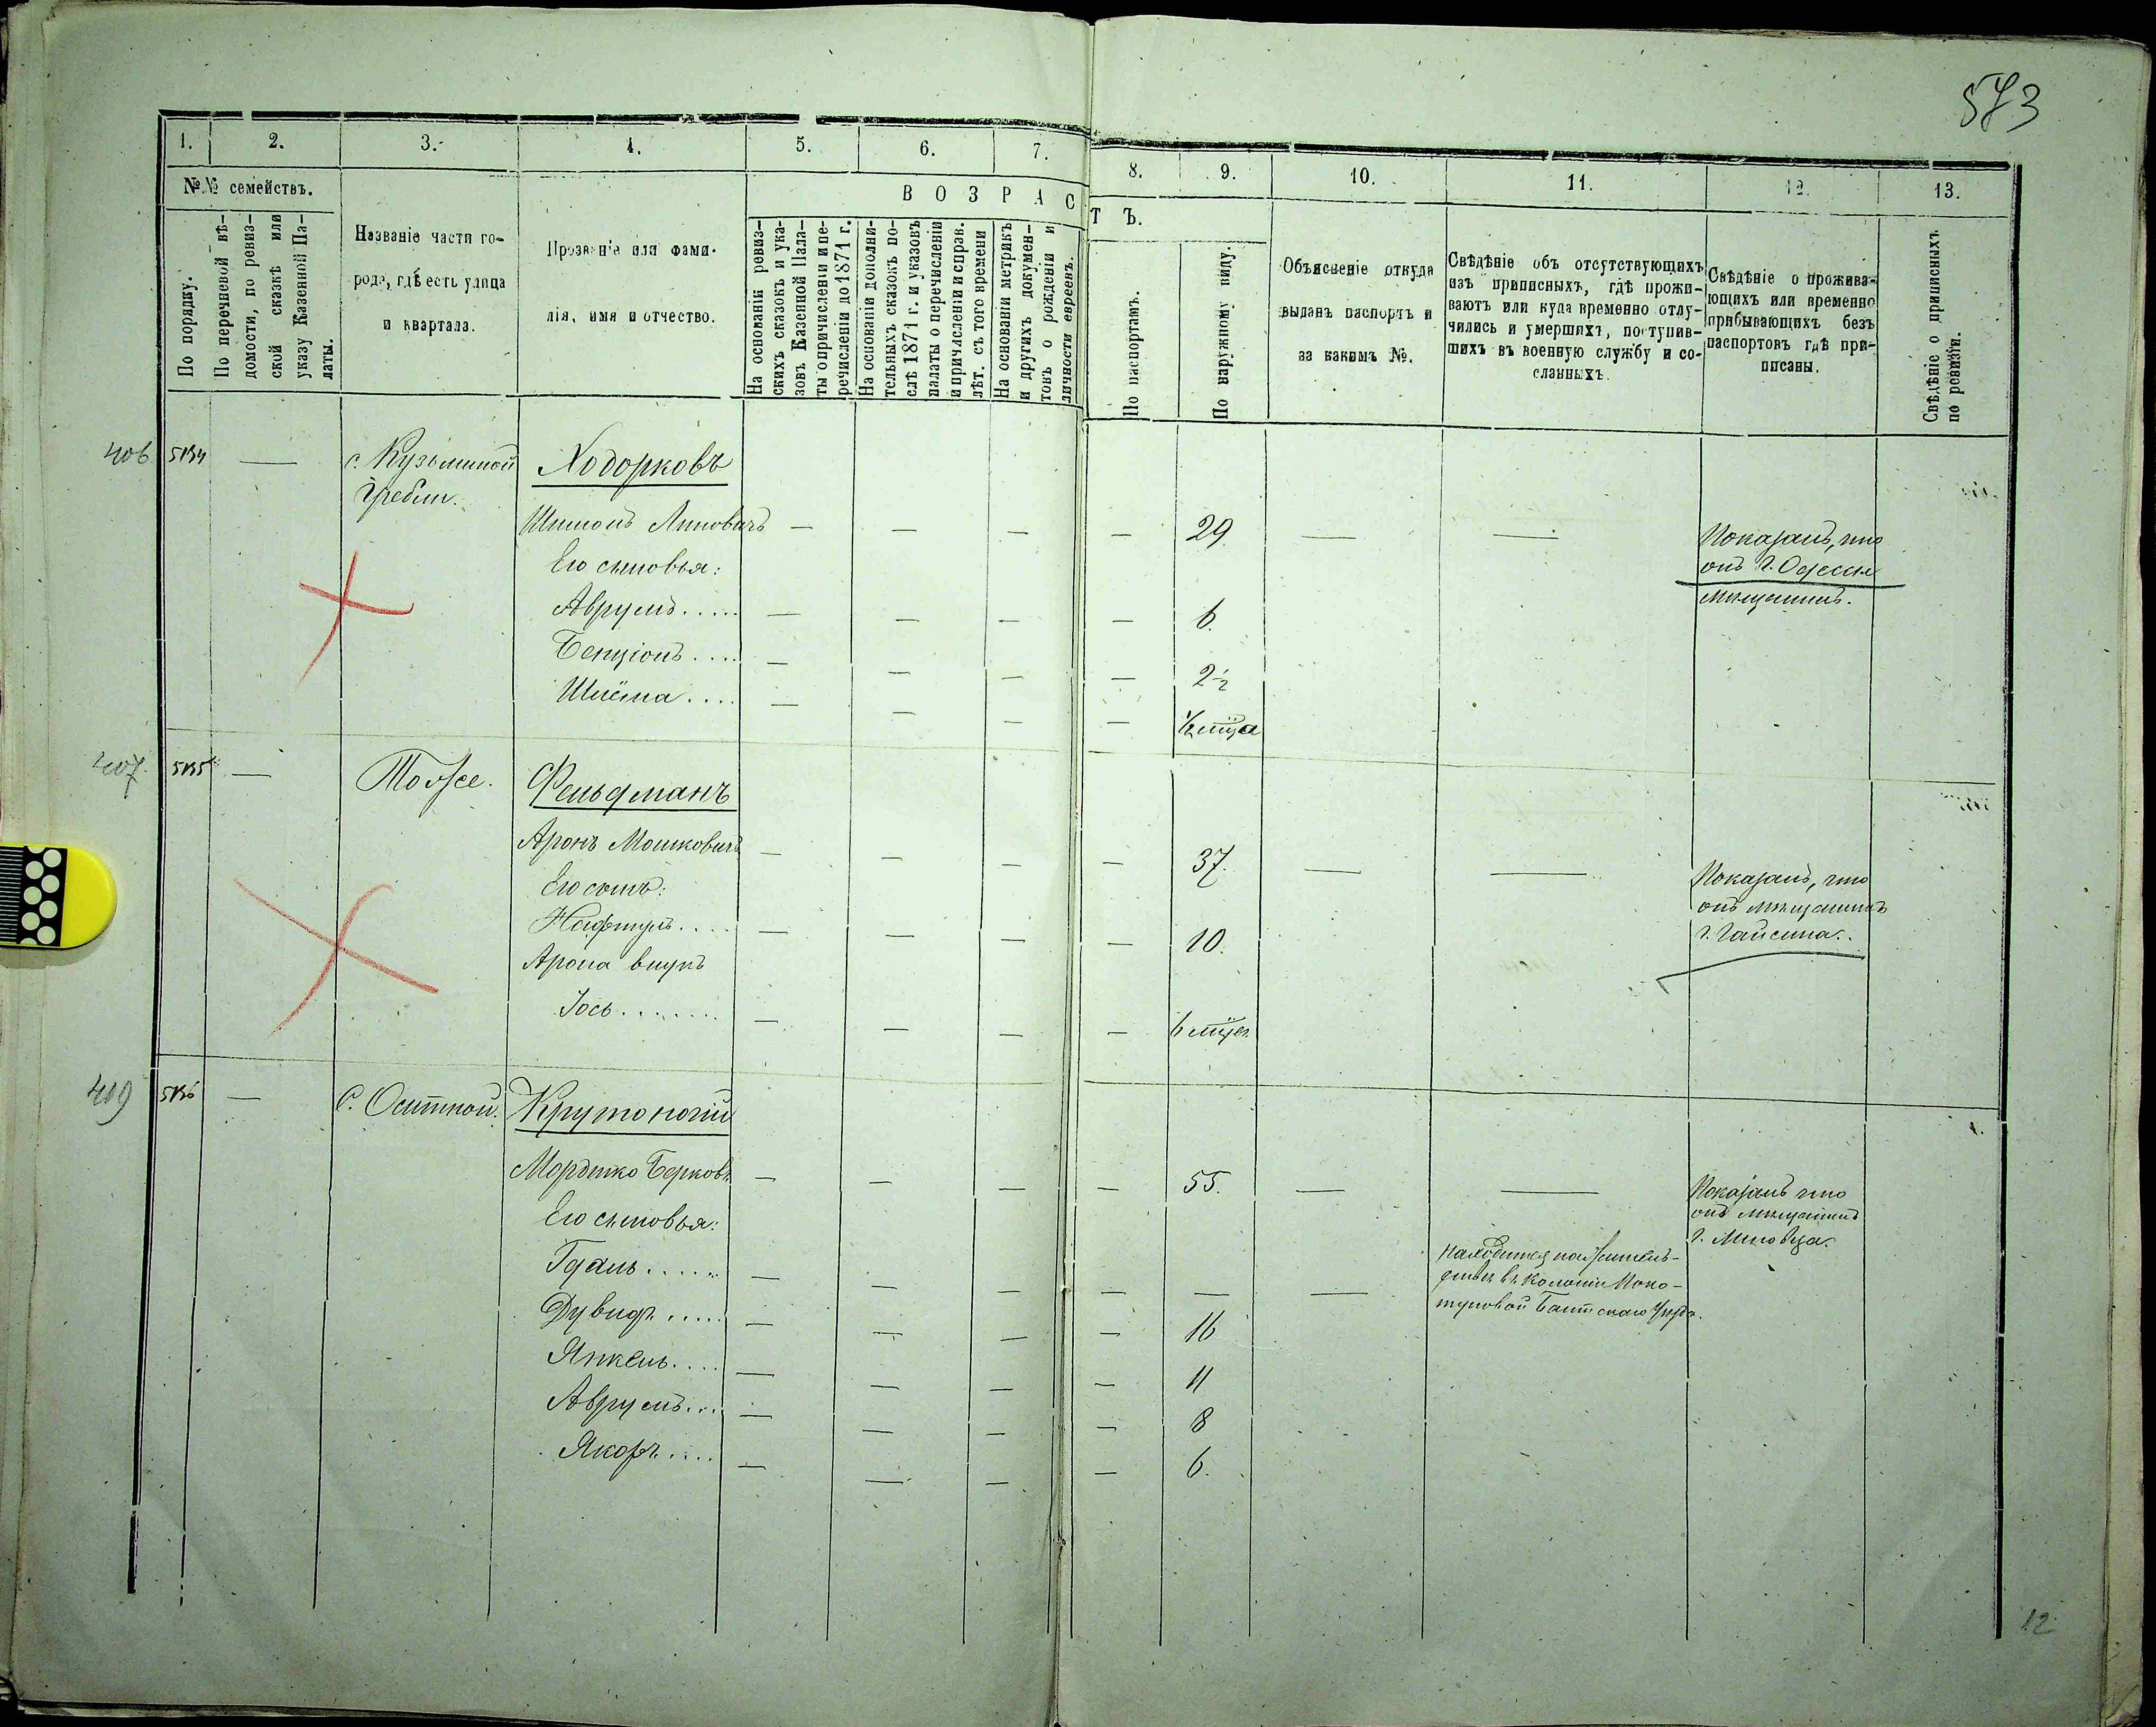 573
1. 2. 3. 4. 5. 6. 7. 8. 9. 10. 11. 12. 13.
№№ семействъ.
По порядку.
По перечневой вѣ-
домости, по ревиз-
ской сказкѣ или
указу Казенной Па-
латы.
Названіе части го-
рода, гдѣ есть улица
и квартала.
Прозваніе или фами-
лія, имя и отчество.
ВОЗРАСТЪ.
На основаніи ревиз-
скихъ сказокъ и ука-
зовъ Казенной Пала-
ты о причисленіи и пе-
речисленіи до 1871 г.
На основаніи дополни-
тельныхъ сказокъ по-
слѣ 1871 г. и указовъ
палаты о перечисленіи
и причисленіи и справ.
лѣт. съ того времени
На основаніи метрикъ
и другихъ докумен-
товъ о рожденіи и
личности евреевъ.
По паспортамъ.
По наружному виду.
Объясненіе откуда
выданъ паспортъ и
за какимъ №.
Свѣдѣніе объ отсутствующихъ
изъ приписныхъ, гдѣ прожи-
ваютъ или куда временно отлу-
чились и умершихъ, поступив-
шихъ въ военную службу и со-
сланныхъ.
Свѣдѣніе о прожива-
ющихъ или временно
прибывающихъ безъ
паспортовъ гдѣ при-
писаны.
Свѣдѣніе о приписныхъ
по ревизіи.
406 5134 — с. Кузьминой Ходорковъ
Гребли.
Шимонъ — — — — 29 — — Показалъ, что
Его сыновья: онъ г. Одессы
Аврумъ..... — — — — 6. мѣщанинъ.
Бенціонъ.... — — — — 2½
Шлёма.... — — — — ½ мѣца
407. 5135 — Тоже. Фельдманъ
Аронъ Мошковичъ — — — — 37. — — Показалъ, что
Его сынъ: онъ мѣщанинъ
Нафтулъ.... — — — — 10. г. Гайсина.
Арона внукъ
Іось....... — — — — 6 мѣцев
409 5136 — С. Оситной. Крутоногій
Мордко Берков. — — — — 55. — — Показалъ что
Его сыновья: онъ мѣщанинъ
Гдаль..... — — — — — — находится на житель-
ствѣ въ Колоніи
Балтскаго уѣзда.
Дувидъ..... — — — — 16
Янкель.... — — — — 11
Аврумъ... — — — — 8
— — — — 6.
12